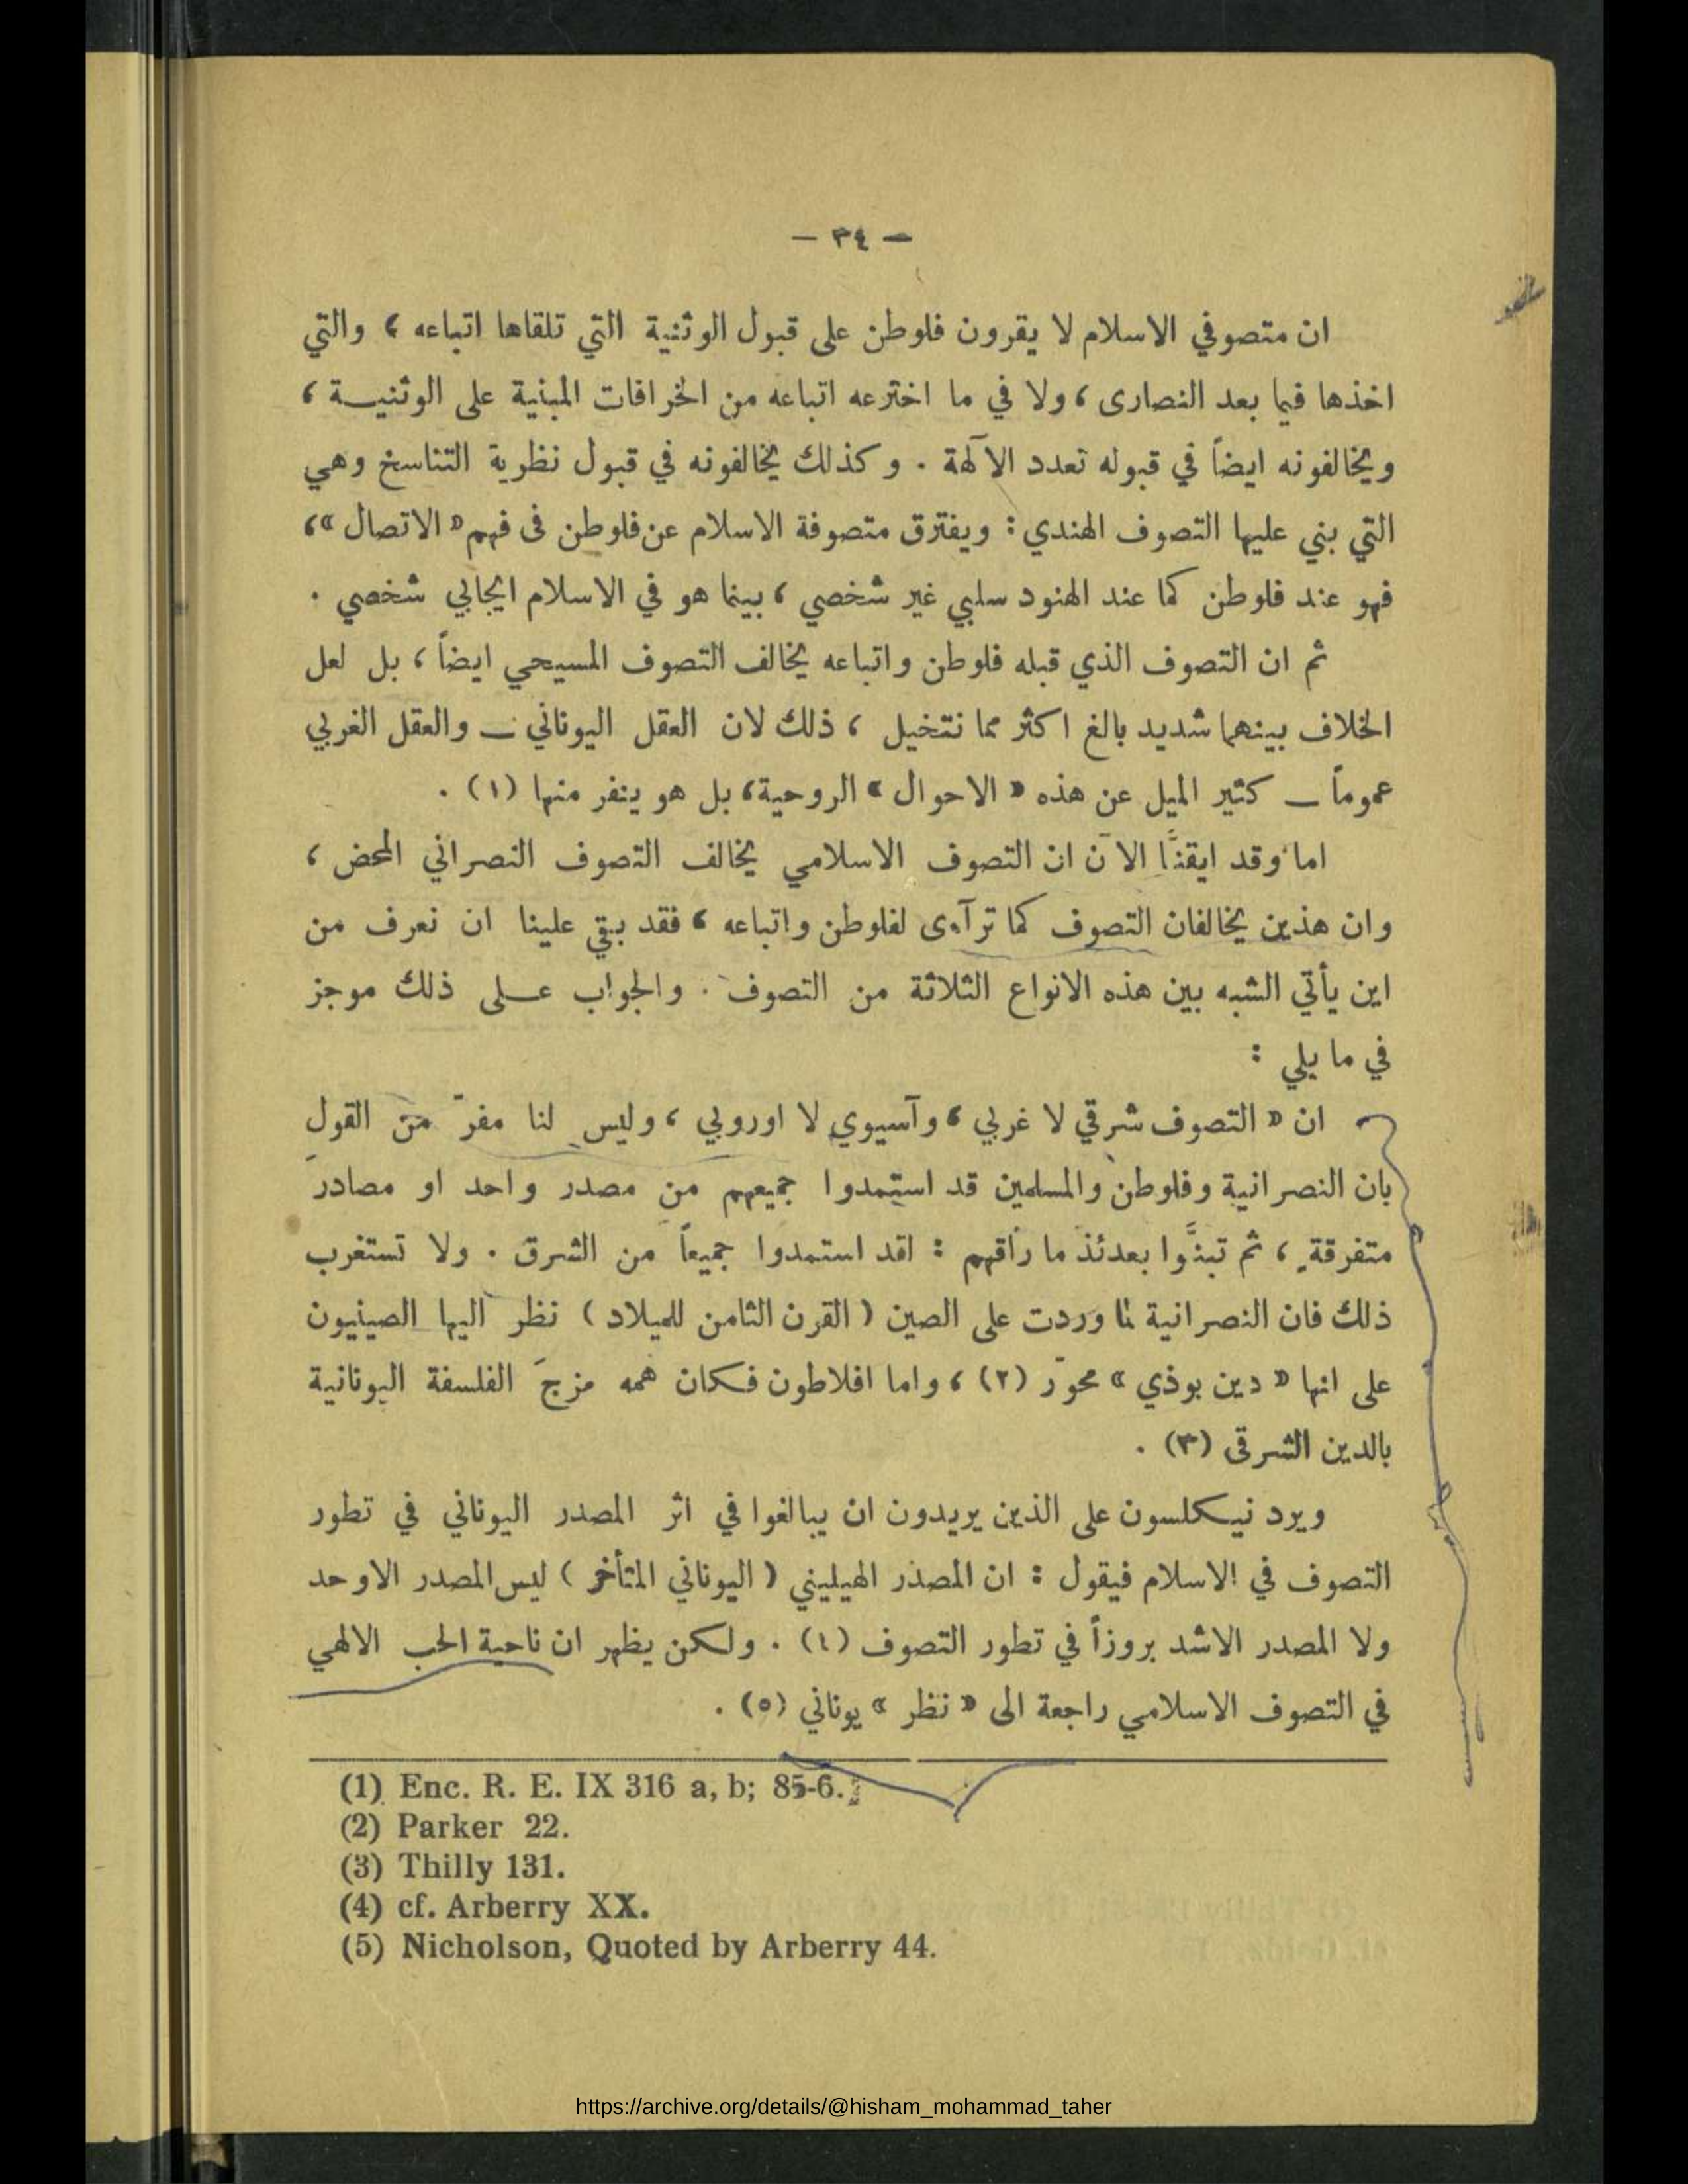 — ٣٤ —
ان متصوفي الاسلام لا يقرون فلوطن على قبول الوثنية التي تلقاها اتباعه ، والتي
اخذها فيما بعد النصارى ، ولا في ما اخترعه اتباعه من الخرافات المبنية على الوثنيـة ،
ويخالفونه ايضاً في قبوله تعدد الآلهة . وكذلك يخالفونه في قبول نظرية التناسخ وهي
التي بني عليها التصوف الهندي : ويفترق متصوفة الاسلام عن فلوطن فى فهم « الاتصال » ،
فهو عند فلوطن كما عند الهنود سلبي غير شخصي ، بينما هو في الاسلام ايجابي شخصي .
ثم ان التصوف الذي قبله فلوطن واتباعه يخالف التصوف المسيحي ايضاً ، بل لعل
الخلاف بينهما شديد بالغ اكثر مما نتخيل ، ذلك لان العقل اليوناني — والعقل الغربي
عموماً — كثير الميل عن هذه « الاحوال » الروحية ، بل هو ينفر منها (١) .
اما وقد ايقنَّا الآن ان التصوف الاسلامي يخالف التصوف النصراني المحض ،
وان هذين يخالفان التصوف كما ترآءى لفلوطن واتباعه ، فقد بقي علينا ان نعرف من
اين يأتي الشبه بين هذه الانواع الثلاثة من التصوف . والجواب عـلى ذلك موجز
في ما يلي :
ان « التصوف شرقي لا غربي ، وآسيوي لا اوروبي ، وليس لنا مفرّ من القول
بان النصرانية وفلوطن والمسلمين قد استمدوا جميعهم من مصدر واحد او مصادرَ
متفرقةٍ ، ثم تبنَّوا بعدئذ ما راقهم : لقد استمدوا جميعاً من الشرق . ولا تستغرب
ذلك فان النصرانية لما وردت على الصين ( القرن الثامن للميلاد ) نظر اليها الصينيون
على انها « دين بوذي » محوّر (٢) ، واما افلاطون فـكان همه مزجَ الفلسفة اليونانية
بالدين الشرقى (٣) .
ويرد نيـكلسون على الذين يريدون ان يبالغوا في اثر المصدر اليوناني في تطور
التصوف في الاسلام فيقول : ان المصدر الهيليني ( اليوناني المتأخر ) ليس المصدر الاوحد
ولا المصدر الاشد بروزاً في تطور التصوف (٤) . ولـكن يظهر ان ناحية الحب الالهي
في التصوف الاسلامي راجعة الى « نظر » يوناني (٥) .
(1) Enc. R. E. IX 316 a, b; 85-6.
(2) Parker 22.
(3) Thilly 131.
(4) cf. Arberry XX.
(5) Nicholson, Quoted by Arberry 44.
https://archive.org/details/@hisham_mohammad_taher